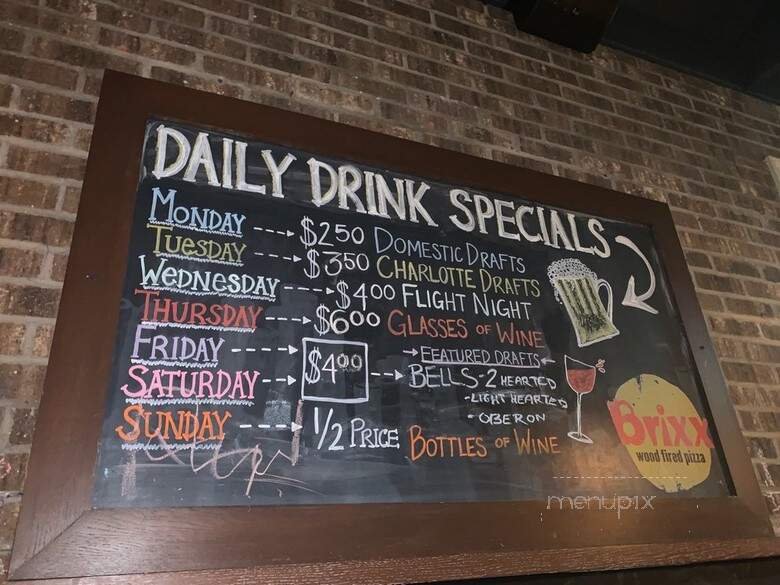 DAILY DRINK SPECIALS
MONDAY ----→ $2.50 DOMESTIC DRAFTS
TUESDAY ----→ $3.50 CHARLOTTE DRAFTS
WEDNESDAY ----→ $4.00 FLIGHT NIGHT
THURSDAY ---→ $6.00 GLASSES OF WINE
FRIDAY ---→ $4.00
SATURDAY --→
→ FEATURED DRAFTS ←
--→ BELLS - 2 HEARTED
- LIGHT HEARTED
- OBERON
SUNDAY ---→ 1/2 PRICE BOTTLES OF WINE
Brixx
wood fired pizza
menupix